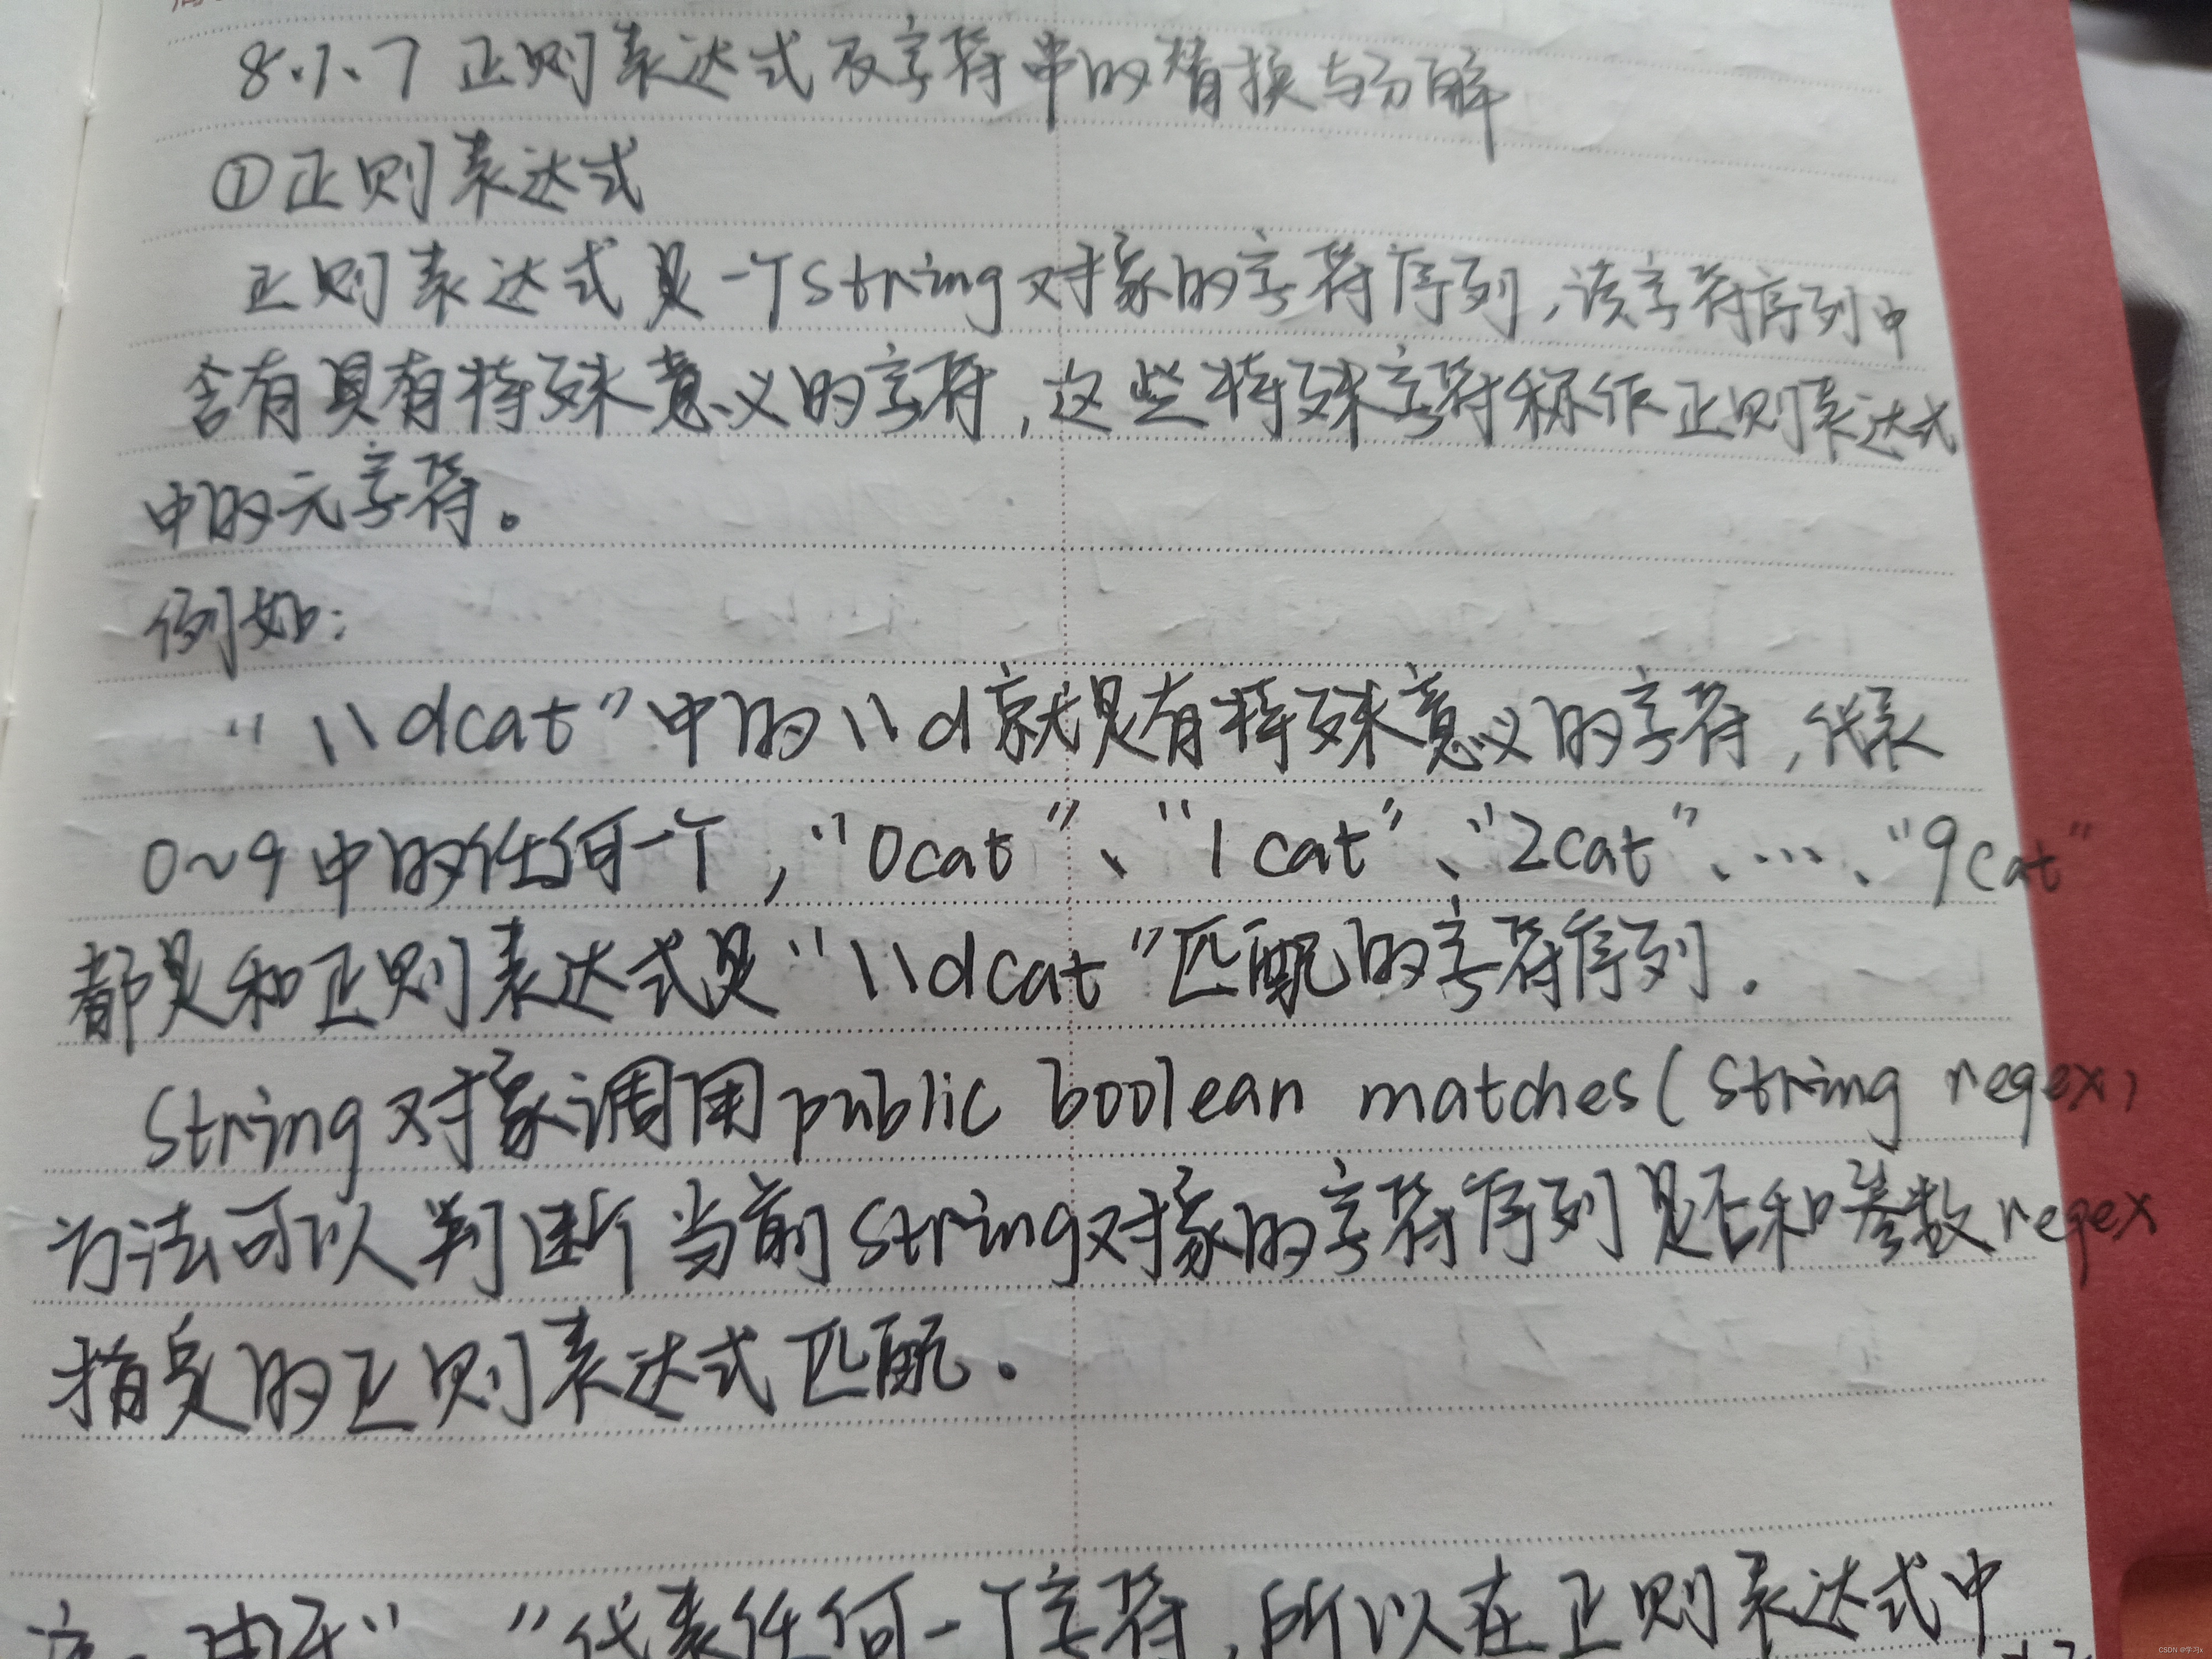 8.1.7 正则表达式及字符串的替换与分解
①正则表达式
正则表达式是一个String对象的字符序列,该字符序列中
含有具有特殊意义的字符,这些特殊字符称作正则表达式
中的元字符。
例如:
"\\dcat"中的\\d就是有特殊意义的字符,代表
0~9中的任何一个,"0cat"、"1cat"、"2cat"、…、"9cat"
都是和正则表达式是"\\dcat"匹配的字符序列.
String对象调用public boolean matches(String regex)
方法可以判断当前String对象的字符序列是否和参数regex
指定的正则表达式匹配.
由于" "代表任何一个字符,所以在正则表达式中
CSDN @学习x